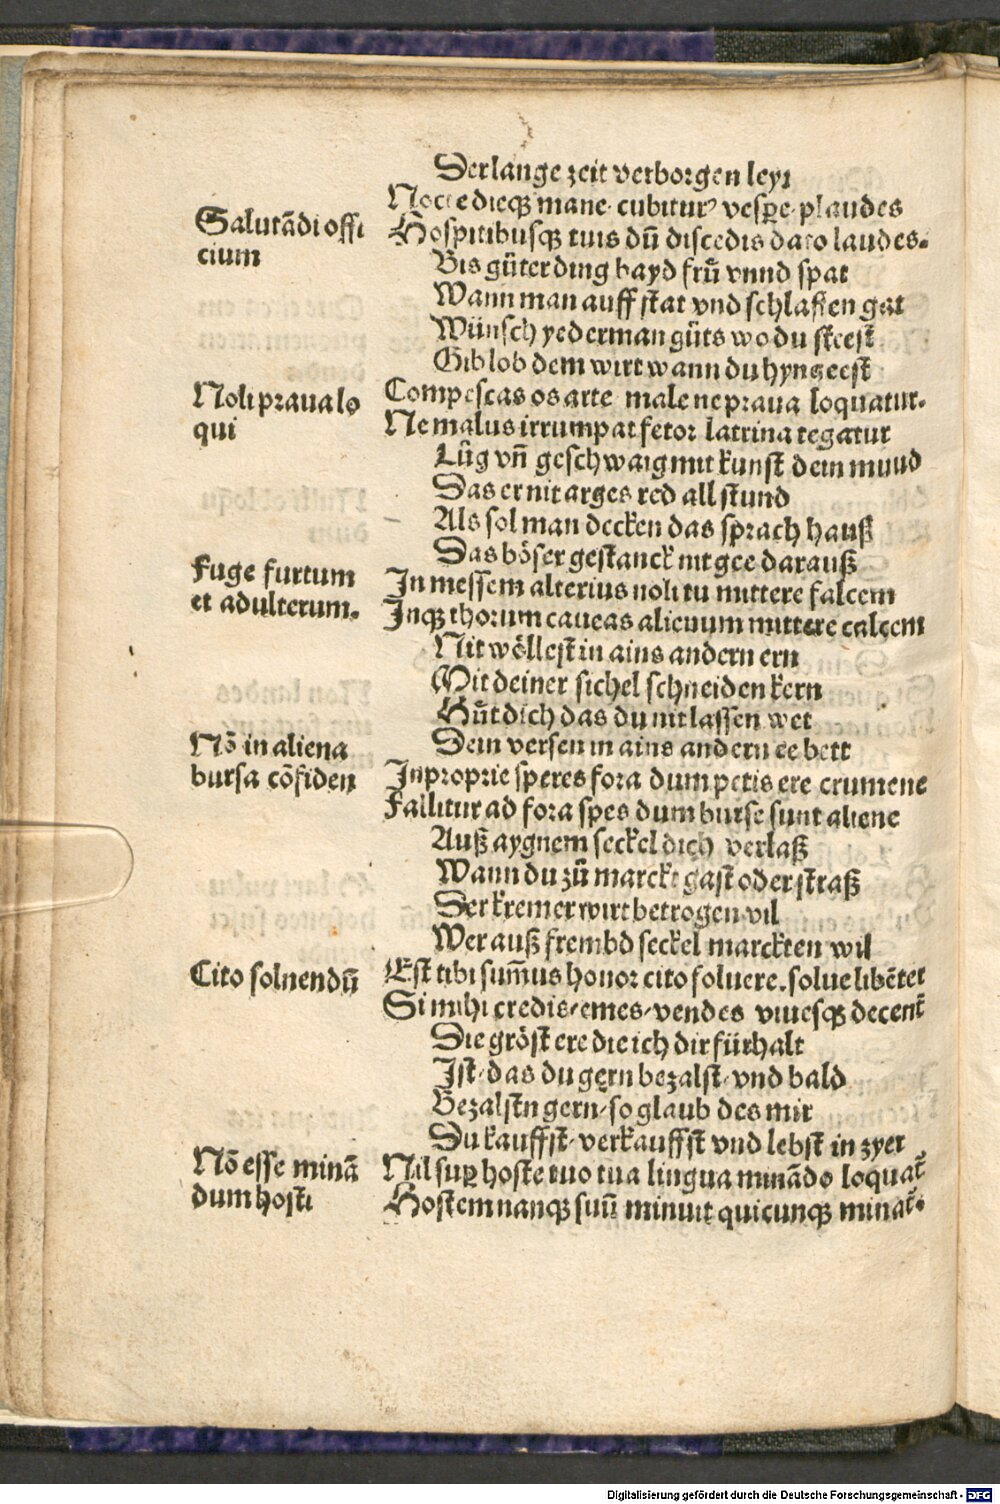 Der lange zeit verborgen leyt
Nocte dieq₃ mane cubitur⁹ vesꝑe plaudes
Salutādi offi
cium
Hospitibusq₃ tuis dū discedis dato laudes.
Bis gůter ding bayd frů vnnd spat
Wann man auff stat vnd schlaffen gat
Wünsch yederman gůts wo du steest
Gib lob dem wirt wann du hyngeest
Noli praua lo
qui
Compescas os arte male ne praua loquatur.
Ne malus irrumpat fetor latrina tegatur
Lůg vn̄ geschwaig mit kunst dein mund
Das er nit arges red all stund
Als sol man decken das sprach hauß
Das böser gestanck nit gee darauß
Fuge furtum
et adulterum.
In messem alterius noli tu mittere falcem
Inq₃ thorum caueas alienum mittere calcem
Nit wöllest in ains andern ern
Mit deiner sichel schneiden kern
Hůt dich das du nit lassen wet
Dein versen in ains andern ee bett
Nō in aliena
bursa cōfiden
In proprie speres fora dum petis ere crumene
Fallitur ad fora spes dum burse sunt aliene
Auß aygnem seckel dich verlaß
Wann du zů marckt gast oder straß
Der kremer wirt betrogen vil
Wer auß frembd seckel marckten wil
Cito soluendū
Est tibi sum̄us honor cito soluere. solue libēter
Si mihi credis/emes/vendes viuesq₃ decent̄
Die gröst ere die ich dir fürhalt
Ist/das du gern bezalst/vnd bald
Bezalstu gern/so glaub des mir
Du kauffst/verkauffst vnd lebst in zyer
Nō esse minā
dum hosti
Nil suꝑ hoste tuo tua lingua minādo loquat̄
Hostem nanq₃ suū minuit quicunq₃ minat̄.
Digitalisierung gefördert durch die Deutsche Forschungsgemeinschaft - DFG